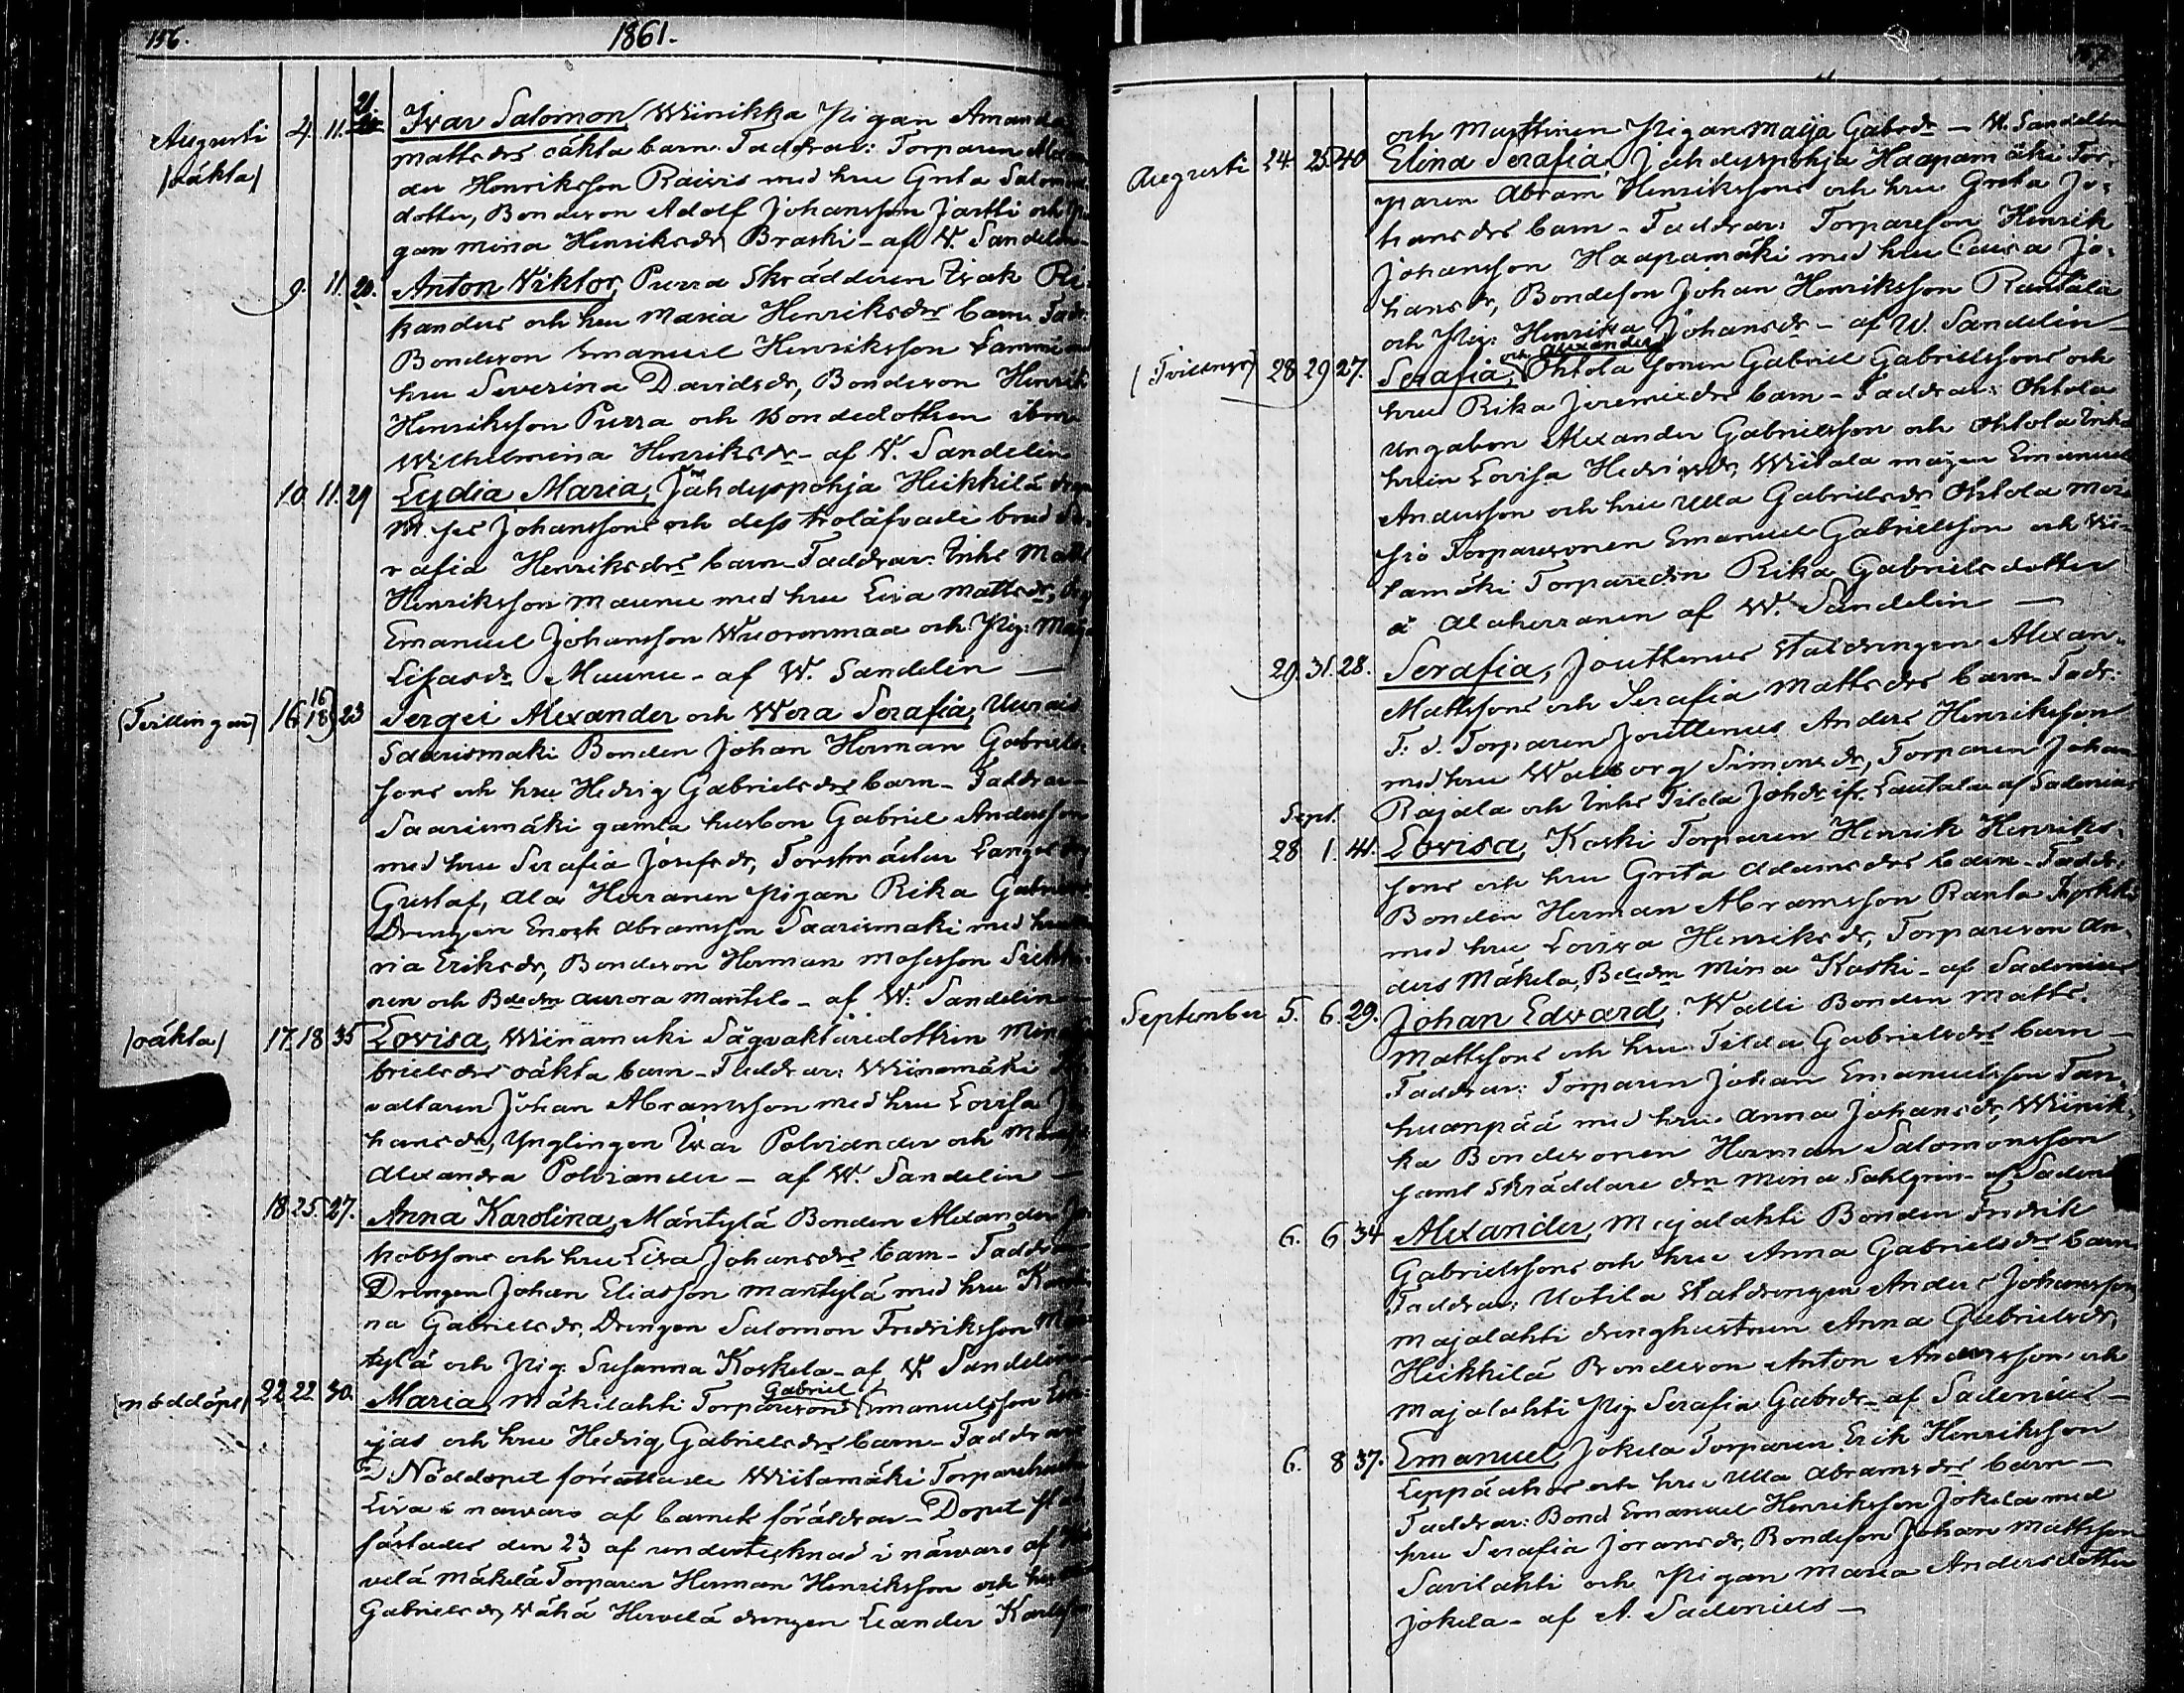 156.
1861.
Augusti 4. 11. 21. Ivar Salomon, Wiinikka Pigan Amanda
/oäkta/ Mattsdrs oäkta barn. Faddrar: Torparen
der Henriksson Raivis med hru Greta Salomons
dotter, Bondeson Adolf Johansson Jaetti och Pi
gan Mina Henriksdr Braski - af W. Sandelin -
9. 11. 20. Anton Wiktor, Purra Skrädderen Isak Ri-
kanders och hru Maria Henriksdrs barn. Fadr.
Bondeson Emanuel Henriksson Lammi med
hru Severina Davidsdr, Bondeson Henrik
Henriksson Purra och Bondedottren ibm
Wilhelmina Henriksdr - af W. Sandelin
10. 11. 29 Lydia Maria, Jähdyspohja Heikkilä
Johanssons och dess trolåfvade brud Se-
rafia Henriksdrs barn - Faddrar: Inhs Matts
Henriksson Maunu med hru Eva Mattsdr, Drg
Emanuel Johansson Wuorenmaa och Pig: Maja
Lisasdr Maunu - af W. Sandelin —
(Tvillingar) 16. 16 18) 23 Sergei Alexander och Wera Serafia, Uurais
Saarismaki Bonden Johan Herman Gabriels-
sons och hru Hedvig Gabrielsdrs barn - Faddrar -
Saarismäki gamla husbon Gabriel Andersson
med hru Serafia Josefsdr, Forstmästar Langel
Gustaf, Ala Herranen Pigan Rika Gabrielsdr
Drengen Enock Abramsson Saarismaki med hru Ma
ria Eriksdr, Bondeson Herman Mosesson Sikki-
nen och Bdedr Aurora Mantila - af W. Sandelin -
/oäkta/ 17. 18 35 Lovisa, Wiinamäki Sågvaktaredottren Mina Ga
brielsdrs oäkta barn - Faddrar: Wiinamäki
valtaren Johan Abramsson med hru Lovisa Jo
hansdr, Ynglingen Ivar Polviander och Mamsell
Alexandra Polviander - af W. Sandelin —
18. 25. 27. Anna Karolina, Mäntylä Bonden Alexander Ja
kobssons och hru Eva Johansdrs barn - Faddrar
Drengen Johan Eliasson Mantylä med hru Karoli
na Gabrielsdr, Drengen Salomon Fredriksson Män
tylä och Pig. Susanna Koskela - af W. Sandelin
(nöddöpt) 22. 22. 30. Maria, Mäkilahti Torpareson Gabriel Emanuelsson
jas och hru Hedvig Gabrielsdrs barn - Faddrar
Nöddopet förrättade Wiitamäki Torparehustr
Eva i närvaro af barnets föräldrar - Dopet stad
fästades den 23 af undertecknad i närvaro af
velä Mäkelä Torparen Herman Henriksson och hru
Gabrielsdr, Wähä Hervelä drengen Leander Karlsson
och Marttinen Pigan Maija Gabrdr — W. Sandelin
Augusti 24. 25. 40 Elina Serafia, Jähdyspohja Haapamäki Tor-
paren Abram Henrikssons och hru Greta Jo-
hansdrs barn - Faddrar: Torpareson Henrik
Johansson Haapamäki med hru Caisa Jo-
hansdr, Bondeson Johan Henriksson Rantala
och Pig: Henrika Johansdr - af W. Sandelin -
(Tvillingar) 28 29 27. Serafia, och Alexander Ohtola Sonen Gabriel Gabrielssons och
hru Rika Jeremiedrs barn - Faddrar: Ohtola
Ungabon Alexander Gabrielsson och Ohtola Inhs
hrun Lovisa Hedvigsdr, Wiitala mågen Emanuel
Andersson och hru Ulla Gabrielsdr Ohtola Moi-
sio Torparesonen Emanuel Gabrielsson och Wii-
tamäki Torparedrn Rika Gabrielsdotter
ä Alaherranen af W. Sandelin —
29. 31. 28. Serafia, Jouttenus Statdrengen Alexan-
Mattssons och Serafia Mattsdrs barn - Fadr:
F. d. Torparen Jouttenus Anders Henriksson
med hru Walborg Simonsdr, Torparen Johan
Rajala och Inhs Tilda Johdr ifr. Lautala af Sadenius
Sept.
28 1. 41. Lovisa, Koski Torparen Henrik Henriks-
sons och hru Greta Adamsdrs barn - Faddr.
Bonden Herman Abramsson Ranta
med hru Lovisa Henriksdr, Torpareson An-
ders Mäkela, Bdedr Mina Koski - af Sadenius
September 5. 6. 29. Johan Edvard, Walli Bonden Matts
Mattssons och hru Tilda Gabrielsdrs barn —
Faddrar: Torparen Johan Emanuelsson Tan-
huanpää med hru Anna Johansdr, Wiinik-
ka Bondesonen Herman Salomonsson
samt Skräddare drn Mina Sahlgrén - af Sadenius
6. 6 34 Alexander, Majalahti Bonden Fredrik
Gabrielssons och hru Anna Gabrielsdrs barn
Faddrar: Uotila Statdrengen Anders Johansson
Majalahti drenghustrun Anna Gabrielsdr,
Heikkilä Bondeson Anton Andersson och
Majalahti Pig. Serafia Gabrdr - af Sadenius -
6. 8 37. Emanuel, Jokela Torparen Erik Henriksson
Leppäahos och hru Ulla Abramsdrs barn —
Faddrar: Bond Emanuel Henriksson Jokela med
hru Serafia Joransdr, Bondeson Johan Mattsson
Savilahti och Pigan Maria Andersdotter
Jokela - af A. Sadenius —